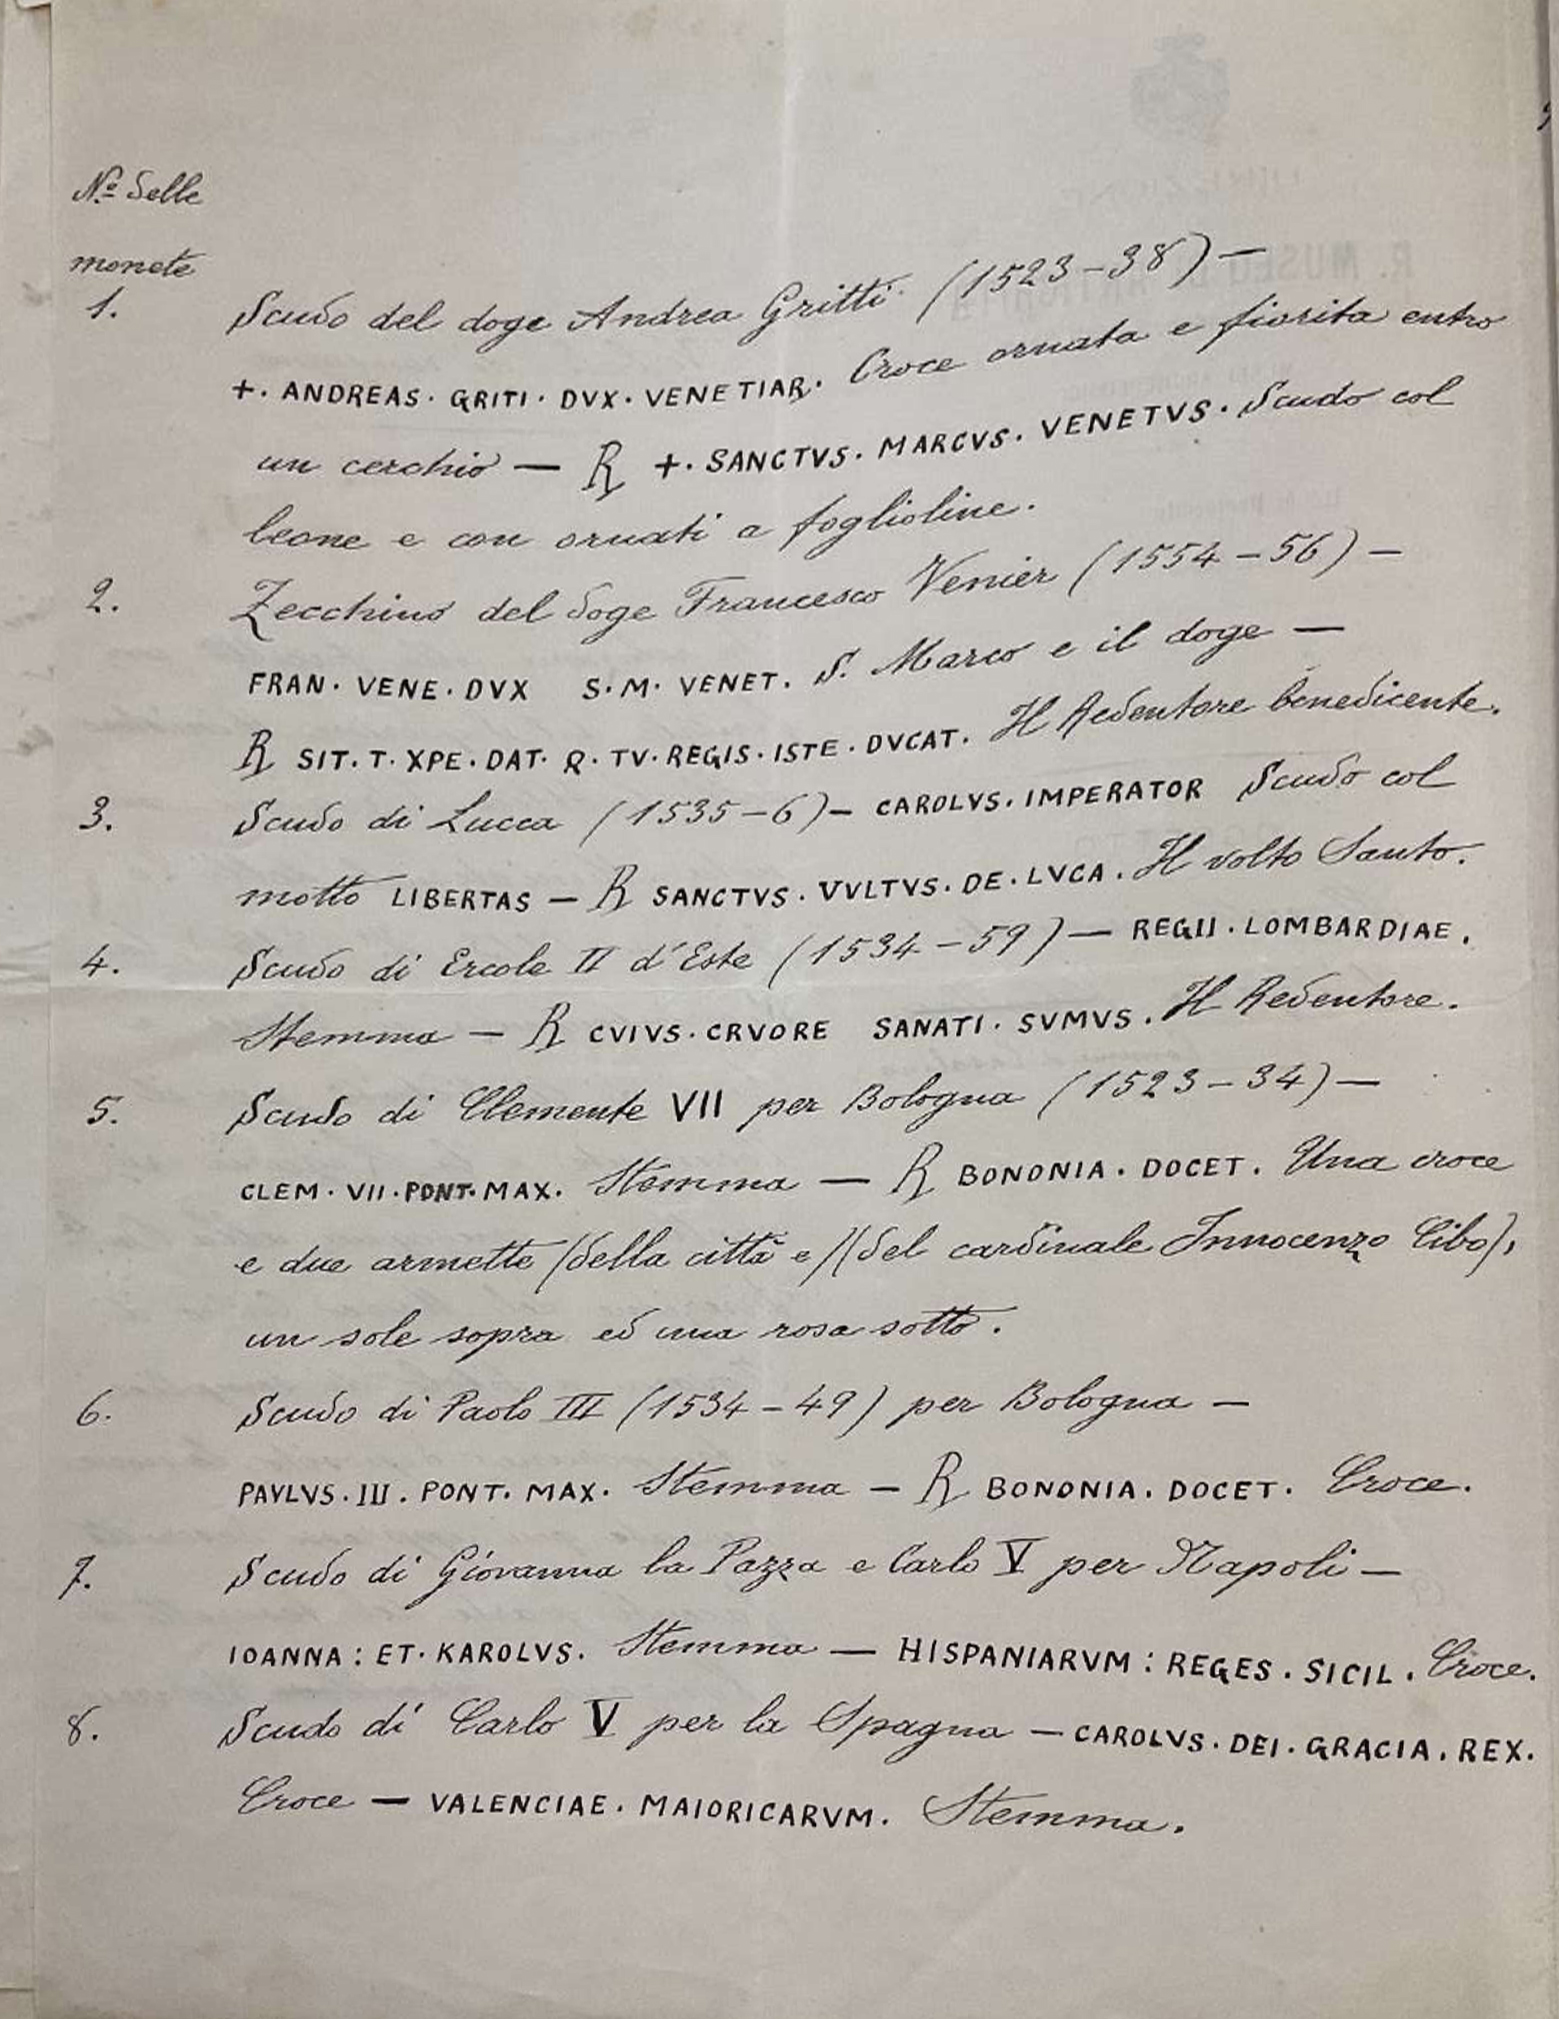 Nº delle
monete
1. Scudo del doge Andrea Gritti (1523-38) —
+. ANDREAS. GRITI. DVX. VENETIAR. Croce ornata e fiorita entro
un cerchio — R +. SANCTVS. MARCVS. VENETVS. Scudo col
leone e con ornati a foglioline.
2. Zecchino del doge Francesco Venier (1554-56) —
FRAN. VENE. DVX S. M. VENET. S. Marco e il doge —
R SIT. T. XPE. DAT. Q. TV. REGIS. ISTE. DVCAT. Il Redentore benedicente.
3. Scudo di Lucca (1535-6) — CAROLVS. IMPERATOR Scudo col
motto LIBERTAS — R SANCTVS. VVLTVS. DE. LVCA. Il volto Santo.
4. Scudo di Ercole II d'Este (1534-59) — REGII. LOMBARDIAE.
Stemma — R CVIVS. CRVORE SANATI. SVMVS. Il Redentore.
5. Scudo di Clemente VII per Bologna (1523-34) —
CLEM. VII. PONT. MAX. Stemma — R BONONIA. DOCET. Una croce
e due armette (della città e) (del cardinale Innocenzo Cibo),
un sole sopra ed una rosa sotto.
6. Scudo di Paolo III (1534-49) per Bologna —
PAVLVS. III. PONT. MAX. Stemma — R BONONIA. DOCET. Croce.
7. Scudo di Giovanna la Pazza e Carlo V per Napoli —
IOANNA: ET. KAROLVS. Stemma — HISPANIARVM: REGES. SICIL. Croce.
8. Scudo di Carlo V per la Spagna — CAROLVS. DEI. GRACIA. REX.
Croce — VALENCIAE. MAIORICARVM. Stemma.